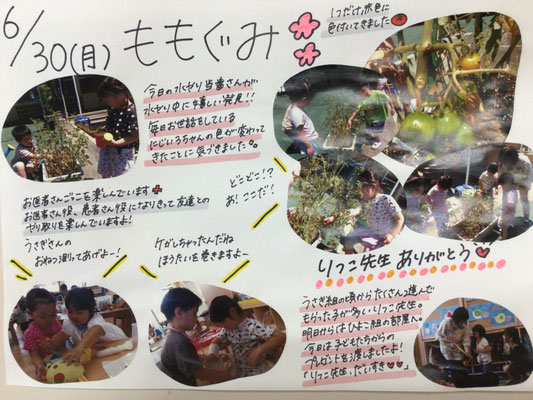 6/30(月) ももぐみ
1つだけ赤色に
色付いてきました
今日の水やり当番さんが
水やり中に嬉しい発見!!
毎日お世話をしている
にじいろちゃんの色が変わって
きたことに気づきました
どこどこ!?
あ!ここだ!
お医者さんごっこを楽しんでいます
お医者さん役、患者さん役になりきって友達との
やり取りを楽しんでいますよ!
うさぎさんの
おねつ測ってあげよ〜!
ケガしちゃったんだね
ほうたいを巻きますよ〜
りつこ先生ありがとう
うさぎ組の頃からたくさん遊んで
もらった子が多いりつこ先生。
明日からはひよこ組の部屋へ。
今日は子どもたちからの
プレゼントを渡しましたよ!
「りつこ先生、だいすき♡♡」